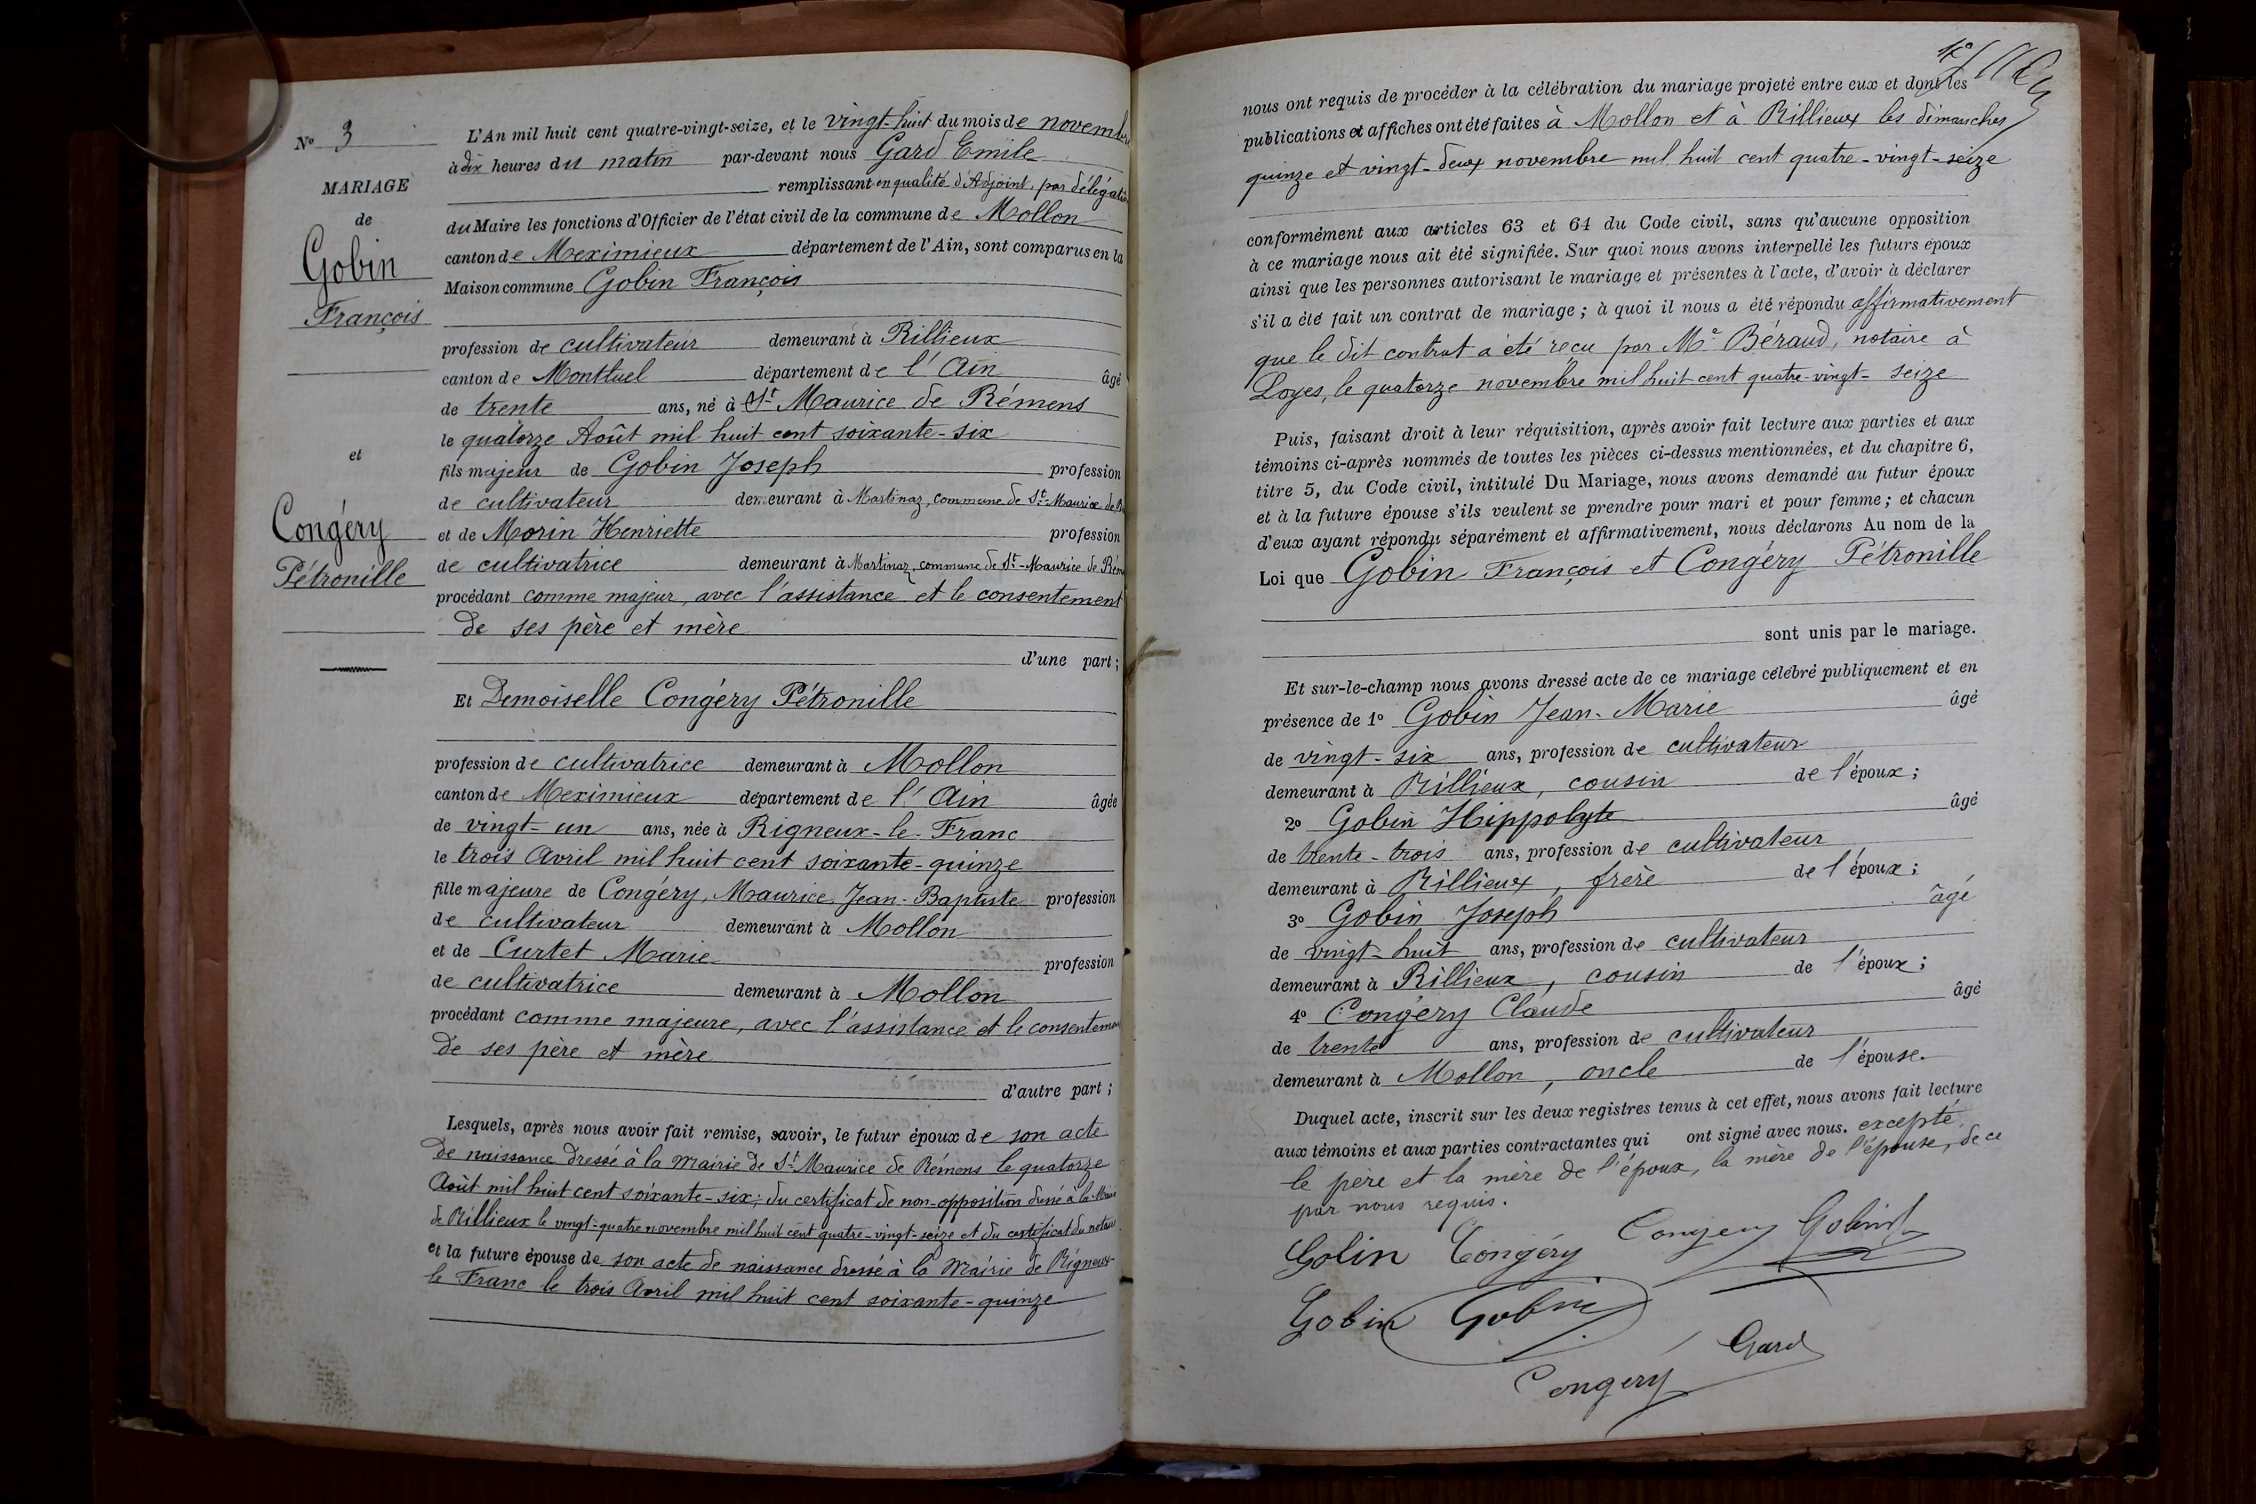 N° 3
MARIAGE
de
Gobin
François
et
Congéry
Pétronille
L'An mil huit cent quatre-vingt-seize, et le vingt-huit du mois de novembre
à dix heures du matin par-devant nous Gard Emile
remplissant en qualité d'Adjoint, par délégation
du Maire les fonctions d'Officier de l'état civil de la commune de Mollon
canton de Meximieux département de l'Ain, sont comparus en la
Maison commune Gobin François
profession de cultivateur demeurant à Rillieux
canton de Montluel département de l'Ain âgé
de trente ans, né à St Maurice de Rémens
le quatorze Août mil huit cent soixante-six
fils majeur de Gobin Joseph profession
de cultivateur demeurant à Martinaz, commune de St-Maurice de R
et de Morin Henriette profession
de cultivatrice demeurant à Martinaz, commune de St-Maurice de Rém
procédant comme majeur, avec l'assistance et le consentement
de ses père et mère
d'une part ;
Et Demoiselle Congéry Pétronille
profession de cultivatrice demeurant à Mollon
canton de Meximieux département de l'Ain âgée
de vingt-un ans, née à Rigneux-le-Franc
le trois Avril mil huit cent soixante-quinze
fille majeure de Congéry, Maurice, Jean-Baptiste profession
de cultivateur demeurant à Mollon
et de Curtet Marie profession
de cultivatrice demeurant à Mollon
procédant comme majeure, avec l'assistance et le consentement
de ses père et mère
d'autre part ;
Lesquels, après nous avoir fait remise, savoir, le futur époux de son acte
de naissance dressé à la Mairie de St-Maurice de Rémens le quatorze
Août mil huit cent soixante-six ; du certificat de non-opposition à la Mairie
de Rillieux le vingt-quatre novembre mil huit cent quatre-vingt-seize et du certificat du notaire
et la future épouse de son acte de naissance dressé à la Mairie de Rigneux
le Franc le trois Avril mil huit cent soixante-quinze
nous ont requis de procéder à la célébration du mariage projeté entre eux et dont les
publications et affiches ont été faites à Mollon et à Rillieux les dimanches
quinze et vingt-deux novembre mil huit cent quatre-vingt-seize
conformément aux articles 63 et 64 du Code civil, sans qu'aucune opposition
à ce mariage nous ait été signifiée. Sur quoi nous avons interpellé les futurs époux
ainsi que les personnes autorisant le mariage et présentes à l'acte, d'avoir à déclarer
s'il a été fait un contrat de mariage ; à quoi il nous a été répondu affirmativement
que le dit contrat a été reçu par Me Béraud, notaire à
Loyes, le quatorze novembre mil huit cent quatre-vingt-seize
Puis, faisant droit à leur réquisition, après avoir fait lecture aux parties et aux
témoins ci-après nommés de toutes les pièces ci-dessus mentionnées, et du chapitre 6,
titre 5, du Code civil, intitulé Du Mariage, nous avons demandé au futur époux
et à la future épouse s'ils veulent se prendre pour mari et pour femme ; et chacun
d'eux ayant répondu séparément et affirmativement, nous déclarons Au nom de la
Loi que Gobin François et Congéry Pétronille
sont unis par le mariage.
Et sur-le-champ nous avons dressé acte de ce mariage célébré publiquement et en
présence de 1° Gobin Jean-Marie âgé
de vingt-six ans, profession de cultivateur
demeurant à Rillieux, cousin de l'époux ;
2° Gobin Hippolyte âgé
de trente-trois ans, profession de cultivateur
demeurant à Rillieux, frère de l'époux ;
3° Gobin Joseph âgé
de vingt-huit ans, profession de cultivateur
demeurant à Rillieux, cousin de l'époux ;
4° Congéry Claude âgé
de trente ans, profession de cultivateur
demeurant à Mollon, oncle de l'épouse.
Duquel acte, inscrit sur les deux registres tenus à cet effet, nous avons fait lecture
aux témoins et aux parties contractantes qui ont signé avec nous. excepté
le père et la mère de l'époux, la mère de l'épouse, de ce
par nous requis.
Gobin Congéry Congery Gobin
Gobin Gobin
Gard
Congéry